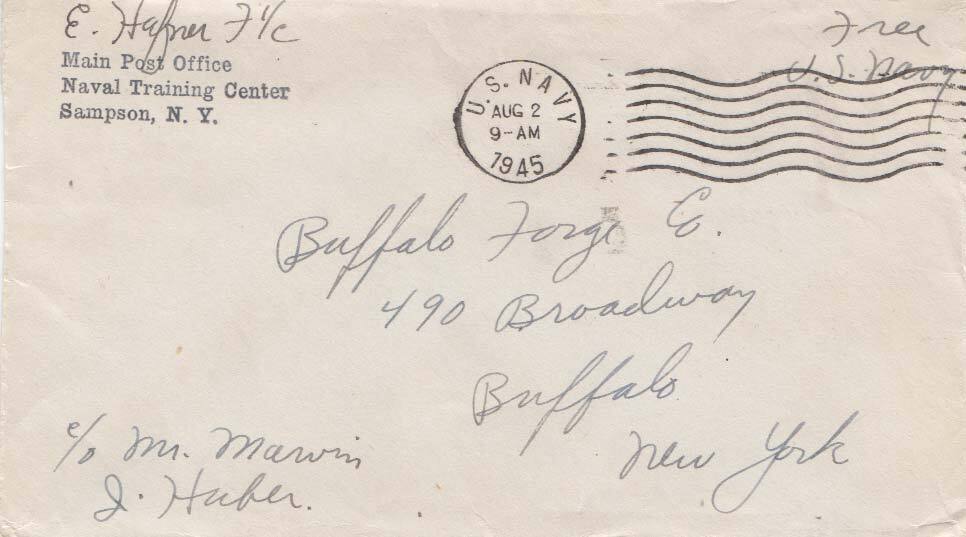 E. Hafner F 1/c
Main Post Office
Naval Training Center
Sampson, N. Y.
U. S. NAVY
AUG 2
9-AM
1945
Free
U.S. Navy
Buffalo Forge Co.
490 Broadway
Buffalo
New York
c/o Mr. Marvin
J. Huber.